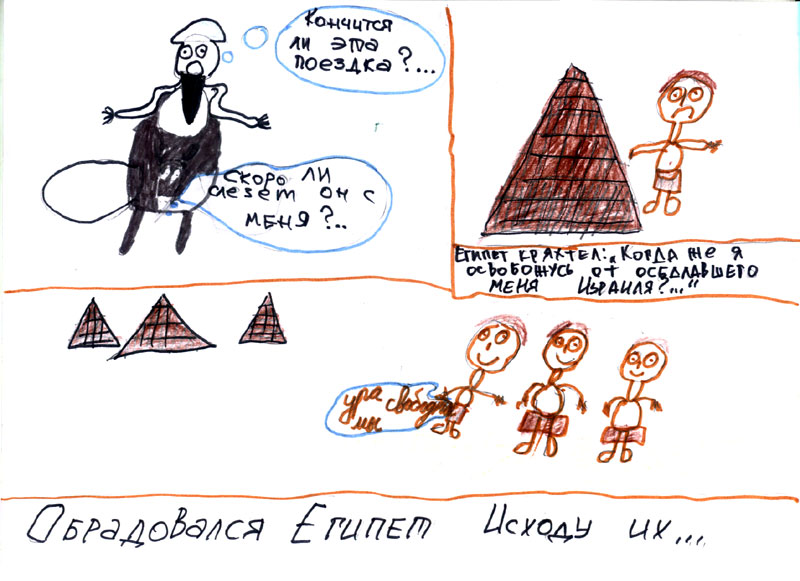 Кончится
ли эта
поездка?...
скоро ли
слезет он с
меня?..
Египет кряхтел: „Когда же я
освобожусь от оседлавшего
меня Израиля?...“
ура свобода
мы
Обрадовался Египет Исходу их...